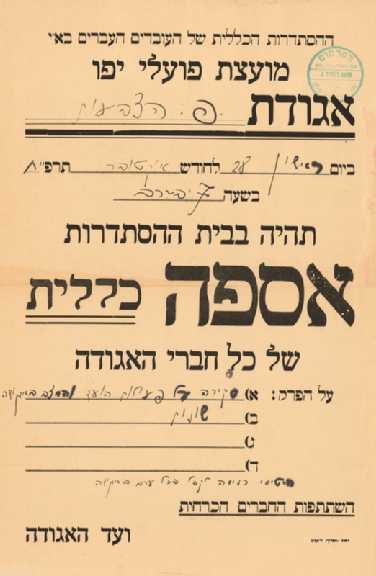 ההסתדרות הכללית של העובדים העברים בא״י
מועצת פועלי יפו
אגודת פ. הצבעות
ביום ראשון 28 לחודש אוקטובר תרפ״ח
בשעה 7 בערב
תהיה בבית ההסתדרות
אספה כללית
של כל חברי האגודה
על הפרק: א) סקירה על פעולות הועד והמצב במקצוע
ב) שונות
ג)
ד)
השתתפות החברים הכרחית
ועד האגודה